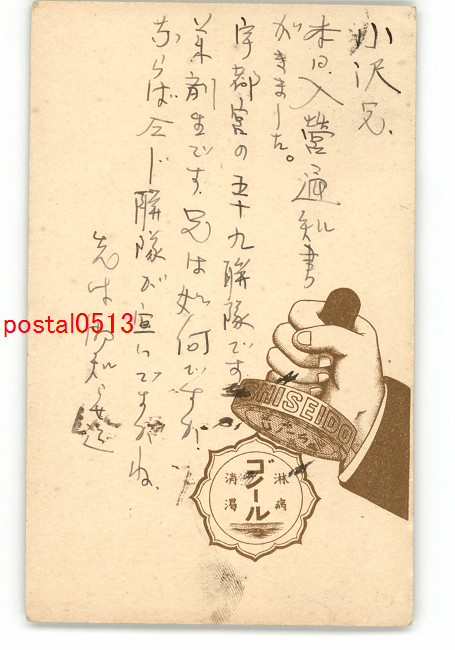 小沢兄、
本日、入營通知書
がきました。
宇都宮の五十九聯隊です
薬剤生です。兄は如何ですか
ならば仝じ聯隊が宜いですがね。
先は御知らせ迄
postal0513
SHISEIDO
ゴノール
淋病
消渇